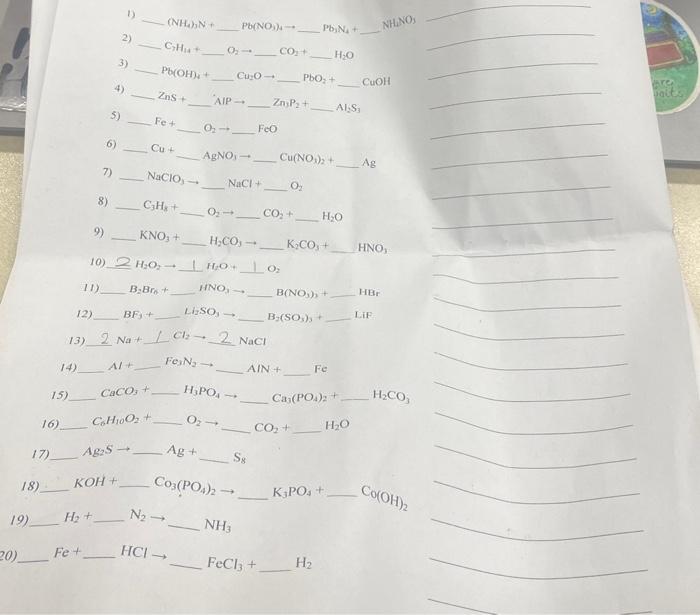 1) ___ (NH₄)₃N + ___ Pb(NO₃)₄ → ___ Pb₃N₄ + ___ NH₄NO₃
2) ___ C₇H₁₄ + ___ O₂ → ___ CO₂ + ___ H₂O
3) ___ Pb(OH)₄ + ___ Cu₂O → ___ PbO₂ + ___ CuOH
4) ___ ZnS + ___ AlP → ___ Zn₃P₂ + ___ Al₂S₃
5) ___ Fe + ___ O₂ → ___ FeO
6) ___ Cu + ___ AgNO₃ → ___ Cu(NO₃)₂ + ___ Ag
7) ___ NaClO₃ → ___ NaCl + ___ O₂
8) ___ C₃H₈ + ___ O₂ → ___ CO₂ + ___ H₂O
9) ___ KNO₃ + ___ H₂CO₃ → ___ K₂CO₃ + ___ HNO₃
10) 2 H₂O₂ → 1 H₂O + 1 O₂
11) ___ B₂Br₆ + ___ HNO₃ → ___ B(NO₃)₃ + ___ HBr
12) ___ BF₃ + ___ Li₂SO₃ → ___ B₂(SO₃)₃ + ___ LiF
13) 2 Na + 1 Cl₂ → 2 NaCl
14) ___ Al + ___ Fe₃N₂ → ___ AlN + ___ Fe
15) ___ CaCO₃ + ___ H₃PO₄ → ___ Ca₃(PO₄)₂ + ___ H₂CO₃
16) ___ C₆H₁₀O₂ + ___ O₂ → ___ CO₂ + ___ H₂O
17) ___ Ag₂S → ___ Ag + ___ S₈
18) ___ KOH + ___ Co₃(PO₄)₂ → ___ K₃PO₄ + ___ Co(OH)₂
19) ___ H₂ + ___ N₂ → ___ NH₃
20) ___ Fe + ___ HCl → ___ FeCl₃ + ___ H₂